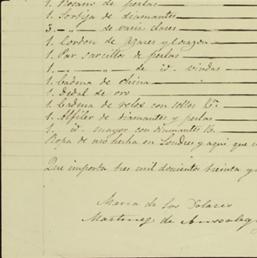 1. Rosario de perlas
1. Sortija de diamantes
3. — " — de varias clases
1. Cordon de azares y corazon
1. Par zarcillos de perlas
1. — " — " — de id. vindas
1. Cadena de china
1. Dedal de oro
1. Cadena de relox con sellos
1. Alfiler de diamantes y perlas
1. id. mayor con diamantes
Ropa de uso hecha en Londres y aqui que
Que importa tres mil doscientos treinta y
Maria de los Dolores
Martinez de